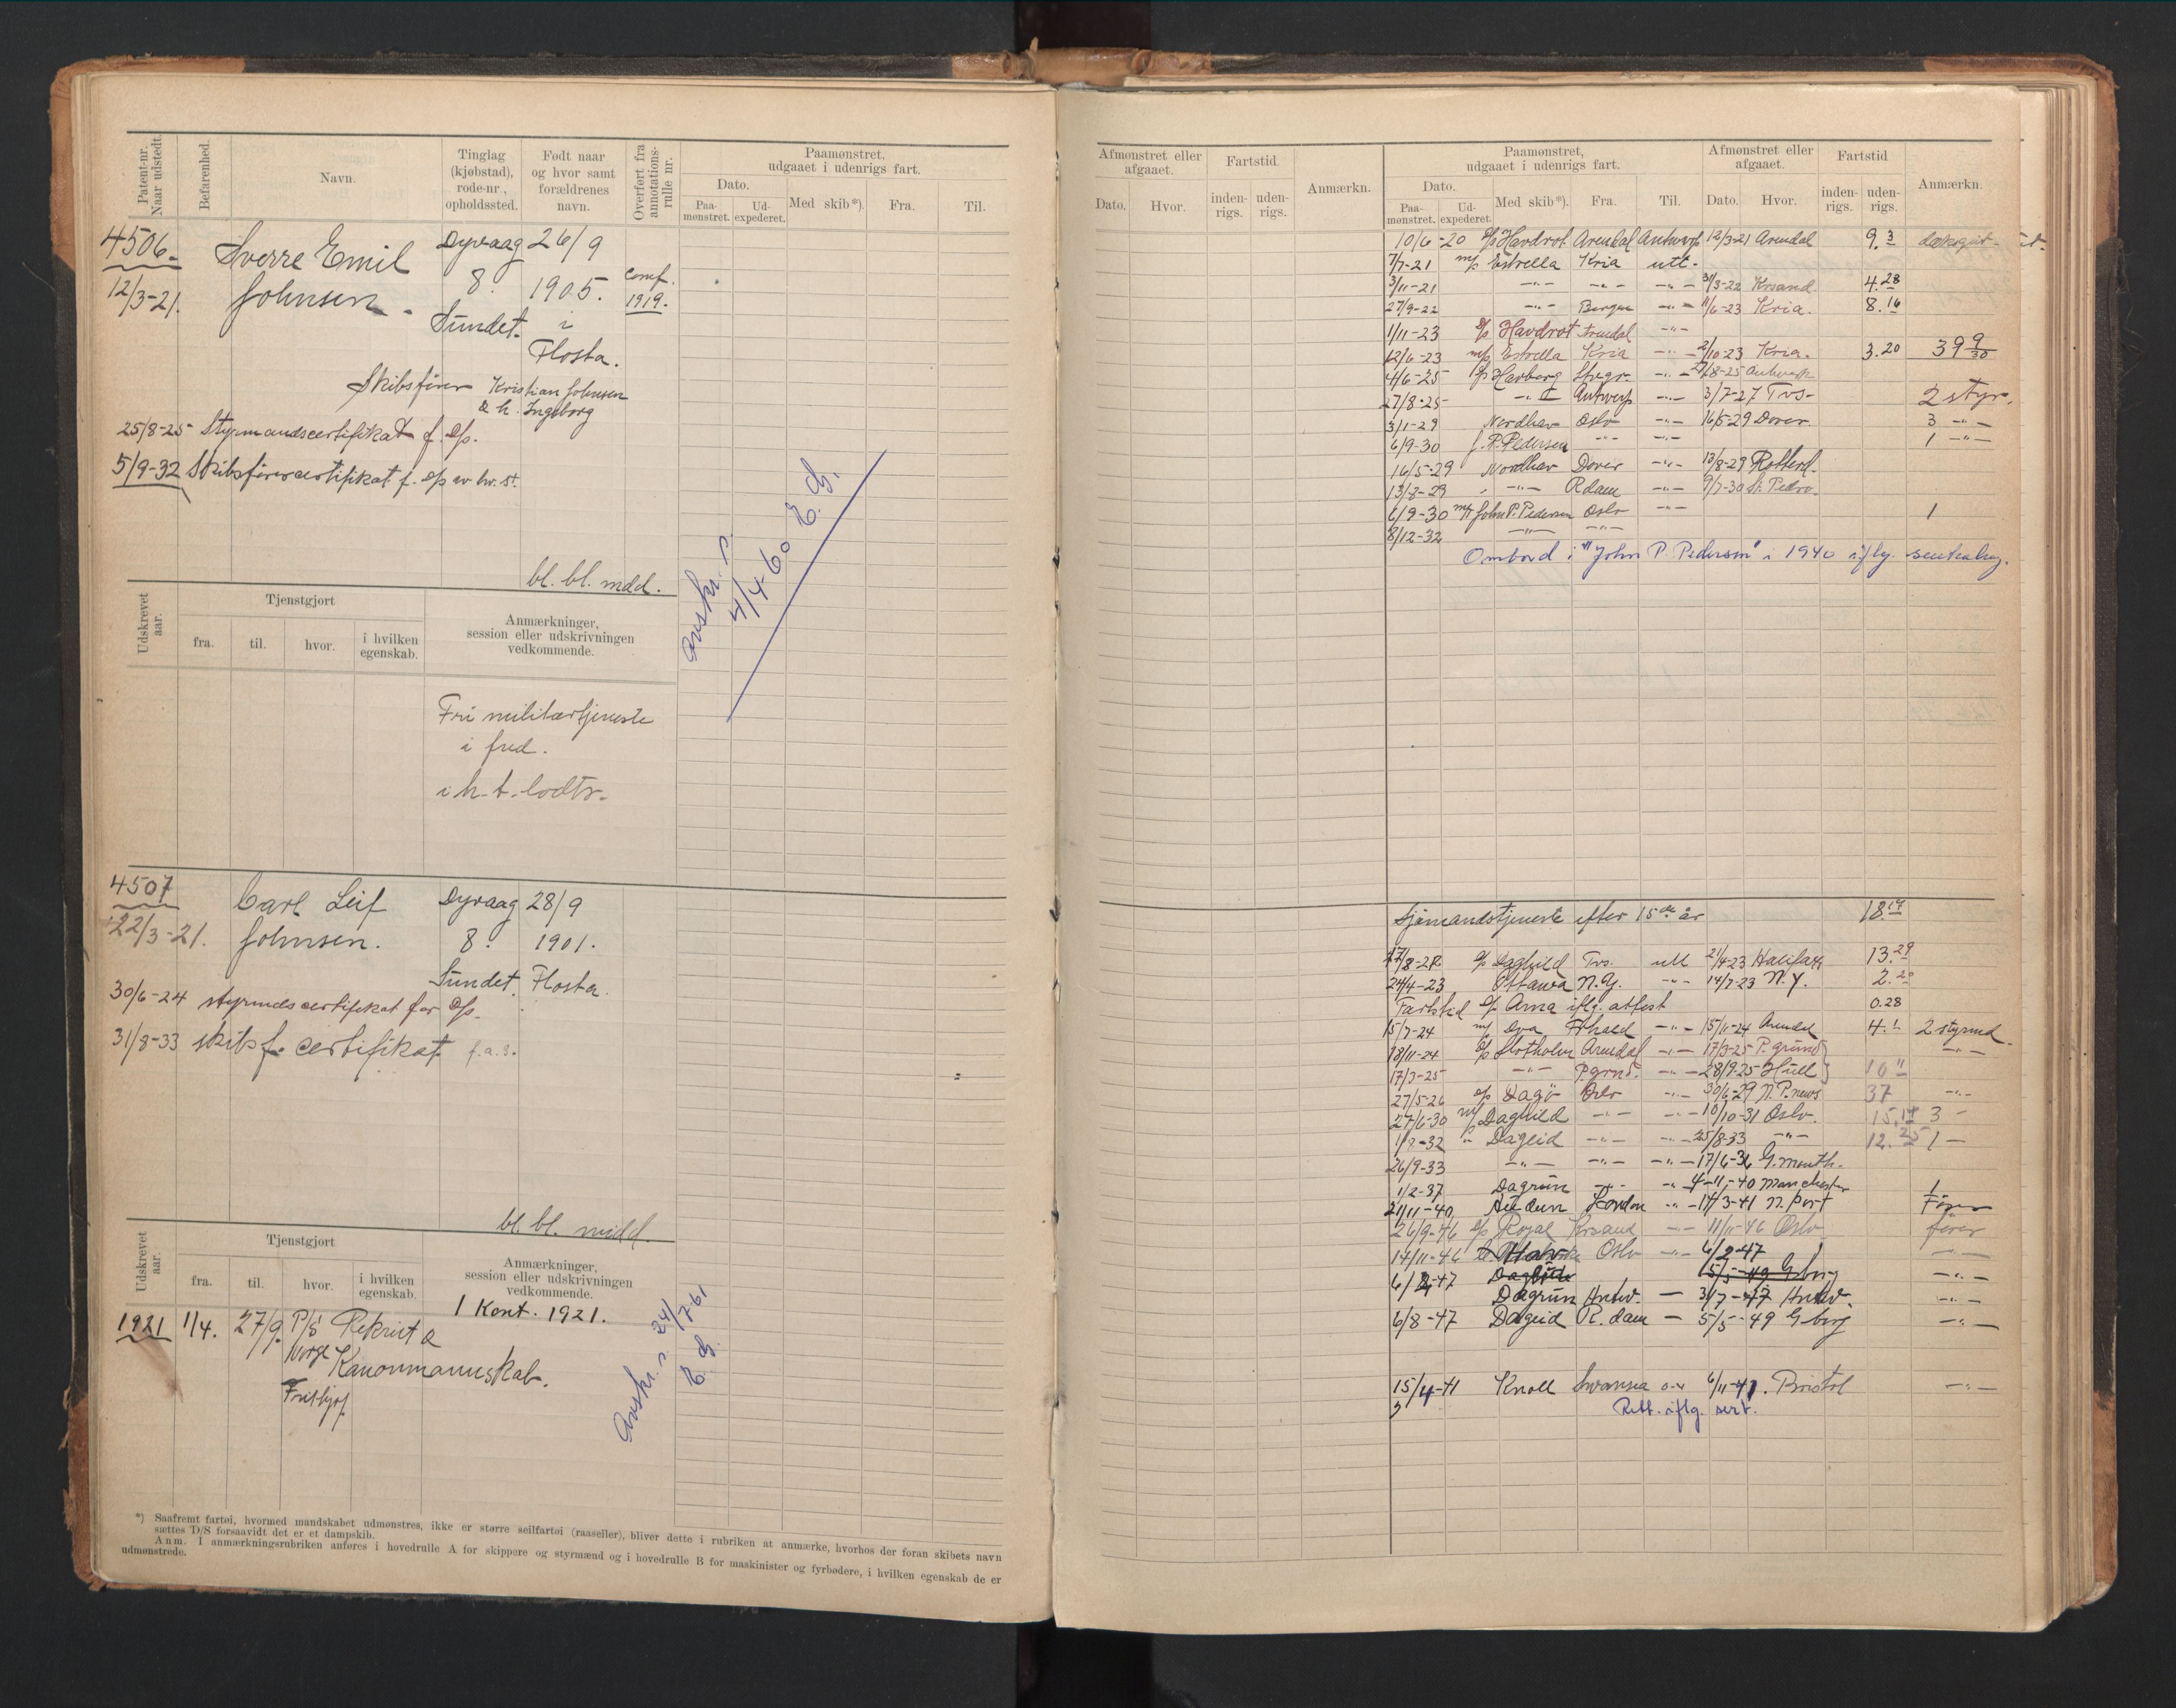 Patent-nr. Naar udstedt.
Befarenhed.
Navn.
Tinglag (kjøbstad), rode-nr., opholdssted.
Født naar og hvor samt forældrenes navn.
Overført fra annotations-rulle nr.
Paamønstret, udgaaet i udenrigs fart.
Dato.
Paa-mønstret.
Ud-expederet.
Med skib*).
Fra.
Til.
4506
12/3-21.
Sverre Emil
Johnsen
Dyvaag
8.
Sundet.
26/9
1905.
i
Flosta.
conf.
1919.
Skibsfører Kristian Johnsen
& h. Ingeborg
25/8-25 Styrmandscertifikat f. D/s.
5/9-32 Skibsførercertifikat f. D/s
bl. bl. mdd.
Avskr.
4/4-60
Udskrevet aar.
Tjenstgjort
fra.
til.
hvor.
i hvilken egenskab.
Anmærkninger, session eller udskrivningen vedkommende.
Fri militærtjeneste
i fred.
4507
22/3-21.
Carl Leif
Johnsen.
Dyvaag
8.
Sundet.
28/9
1901.
Flosta.
30/6-24 styrmdscertifikat for D/s.
31/8-33 skibsf. certifikat.
bl. bl. midd.
Udskrevet aar.
Tjenstgjort
fra.
til.
hvor.
i hvilken egenskab.
Anmærkninger, session eller udskrivningen vedkommende.
1 Kont. 1921.
1921 1/4. 27/9. P/S Rekrut &
Norge Kanonmannskab.
Fridtjof
Avskr.
*) Saafremt fartøi, hvormed mandskabet udmønstres, ikke er større seilfartøi (raaseiler), bliver dette i rubriken at anmærke, hvorhos der foran skibets navn
sættes D/S forsaavidt det er et dampskib.
Anm. I anmærkningsrubriken anføres i hovedrulle A for skippere og styrmænd og i hovedrulle B for maskinister og fyrbødere, i hvilken egenskab de er
udmønstrede.
Afmønstret eller afgaaet.
Dato.
Hvor.
Fartstid
inden-rigs.
uden-rigs.
Anmærkn.
Paamønstret, udgaaet i udenrigs fart.
Dato.
Paa-mønstret.
Ud-expederet.
Med skib*).
Fra.
Til.
Afmønstret eller afgaaet.
Dato.
Hvor.
Fartstid
inden-rigs.
uden-rigs.
Anmærkn.
10/6-20 D/s Havdrot Arendal Antwerp 12/3-21 Arendal 9.3
7/7-21 m/s Estrella Kria utl.
3/11-21 31/3-22 Krsand. 4.28
27/9-22 Bergen 11/6-23 Kria. 8.16
1/11-23 D/s Havdrot Arendal
12/6-23 m/s Estrella Kria 2/10-23 Kria. 3.20 39 9/30
4/6-25 D/s Havborg 27/8-25 Antwerp
27/8-25 Antwerp 3/7-27 Tvs. 2 styr.
3/1-29 Nordhav Oslo 16/5-29 Dover 3
6/9-30 J. P. Pedersen 1
16/5-29 Nordhav Dover 13/8-29 Rotterd.
13/8-29 Rdam 9/7-30 St. Pedro.
6/9-30 m/t John P. Pedersen Oslo 1
8/12-32
Ombord i "John P. Pedersen" i 1940 iflg.
Sjømandstjeneste efter 15de år 18.14
17/8-22 D/s Daghild Tvs. utl 21/4-23 Halifax 13.29
24/4-23 Ottawa N.Y. 14/7-23 N.Y. 2.20
Fartstid D/s Arna iflg. attest 0.28
15/7-24 m/s Fhald 15/11-24 Arendal 4.1 2 styrmd.
18/11-24 D/s Slotholm Arendal 17/3-25 P.grund
17/3-25 P.grnd. 28/9-25 Hull 10
27/5-26 D/s Dagø Oslo 30/6-29 N.P.news 37
27/6-30 m/s Daghild 10/10-31 Oslo. 15.14 3
Dageid 25/8-33 12.25 1
26/9-33 17/6-36 G.mouth.
1/2-37 Dagrun 4-11-40 Manchester 1
21/11-40 Audun London 14/3-41 N.port Fører
26/9-46 D/s Royal Krsand 11/11-46 Oslo fører
14/11-46 Oslo 6/2-47
6/2-47 5/5-49 Gborg
Dagrun Antw. 31/7-47 Antw.
6/8-47 Dageid R.dam 5/5-49 Gborg
15/4-41 Knoll Swansea 6/11-41. Bristol
Rett. iflg. sert.